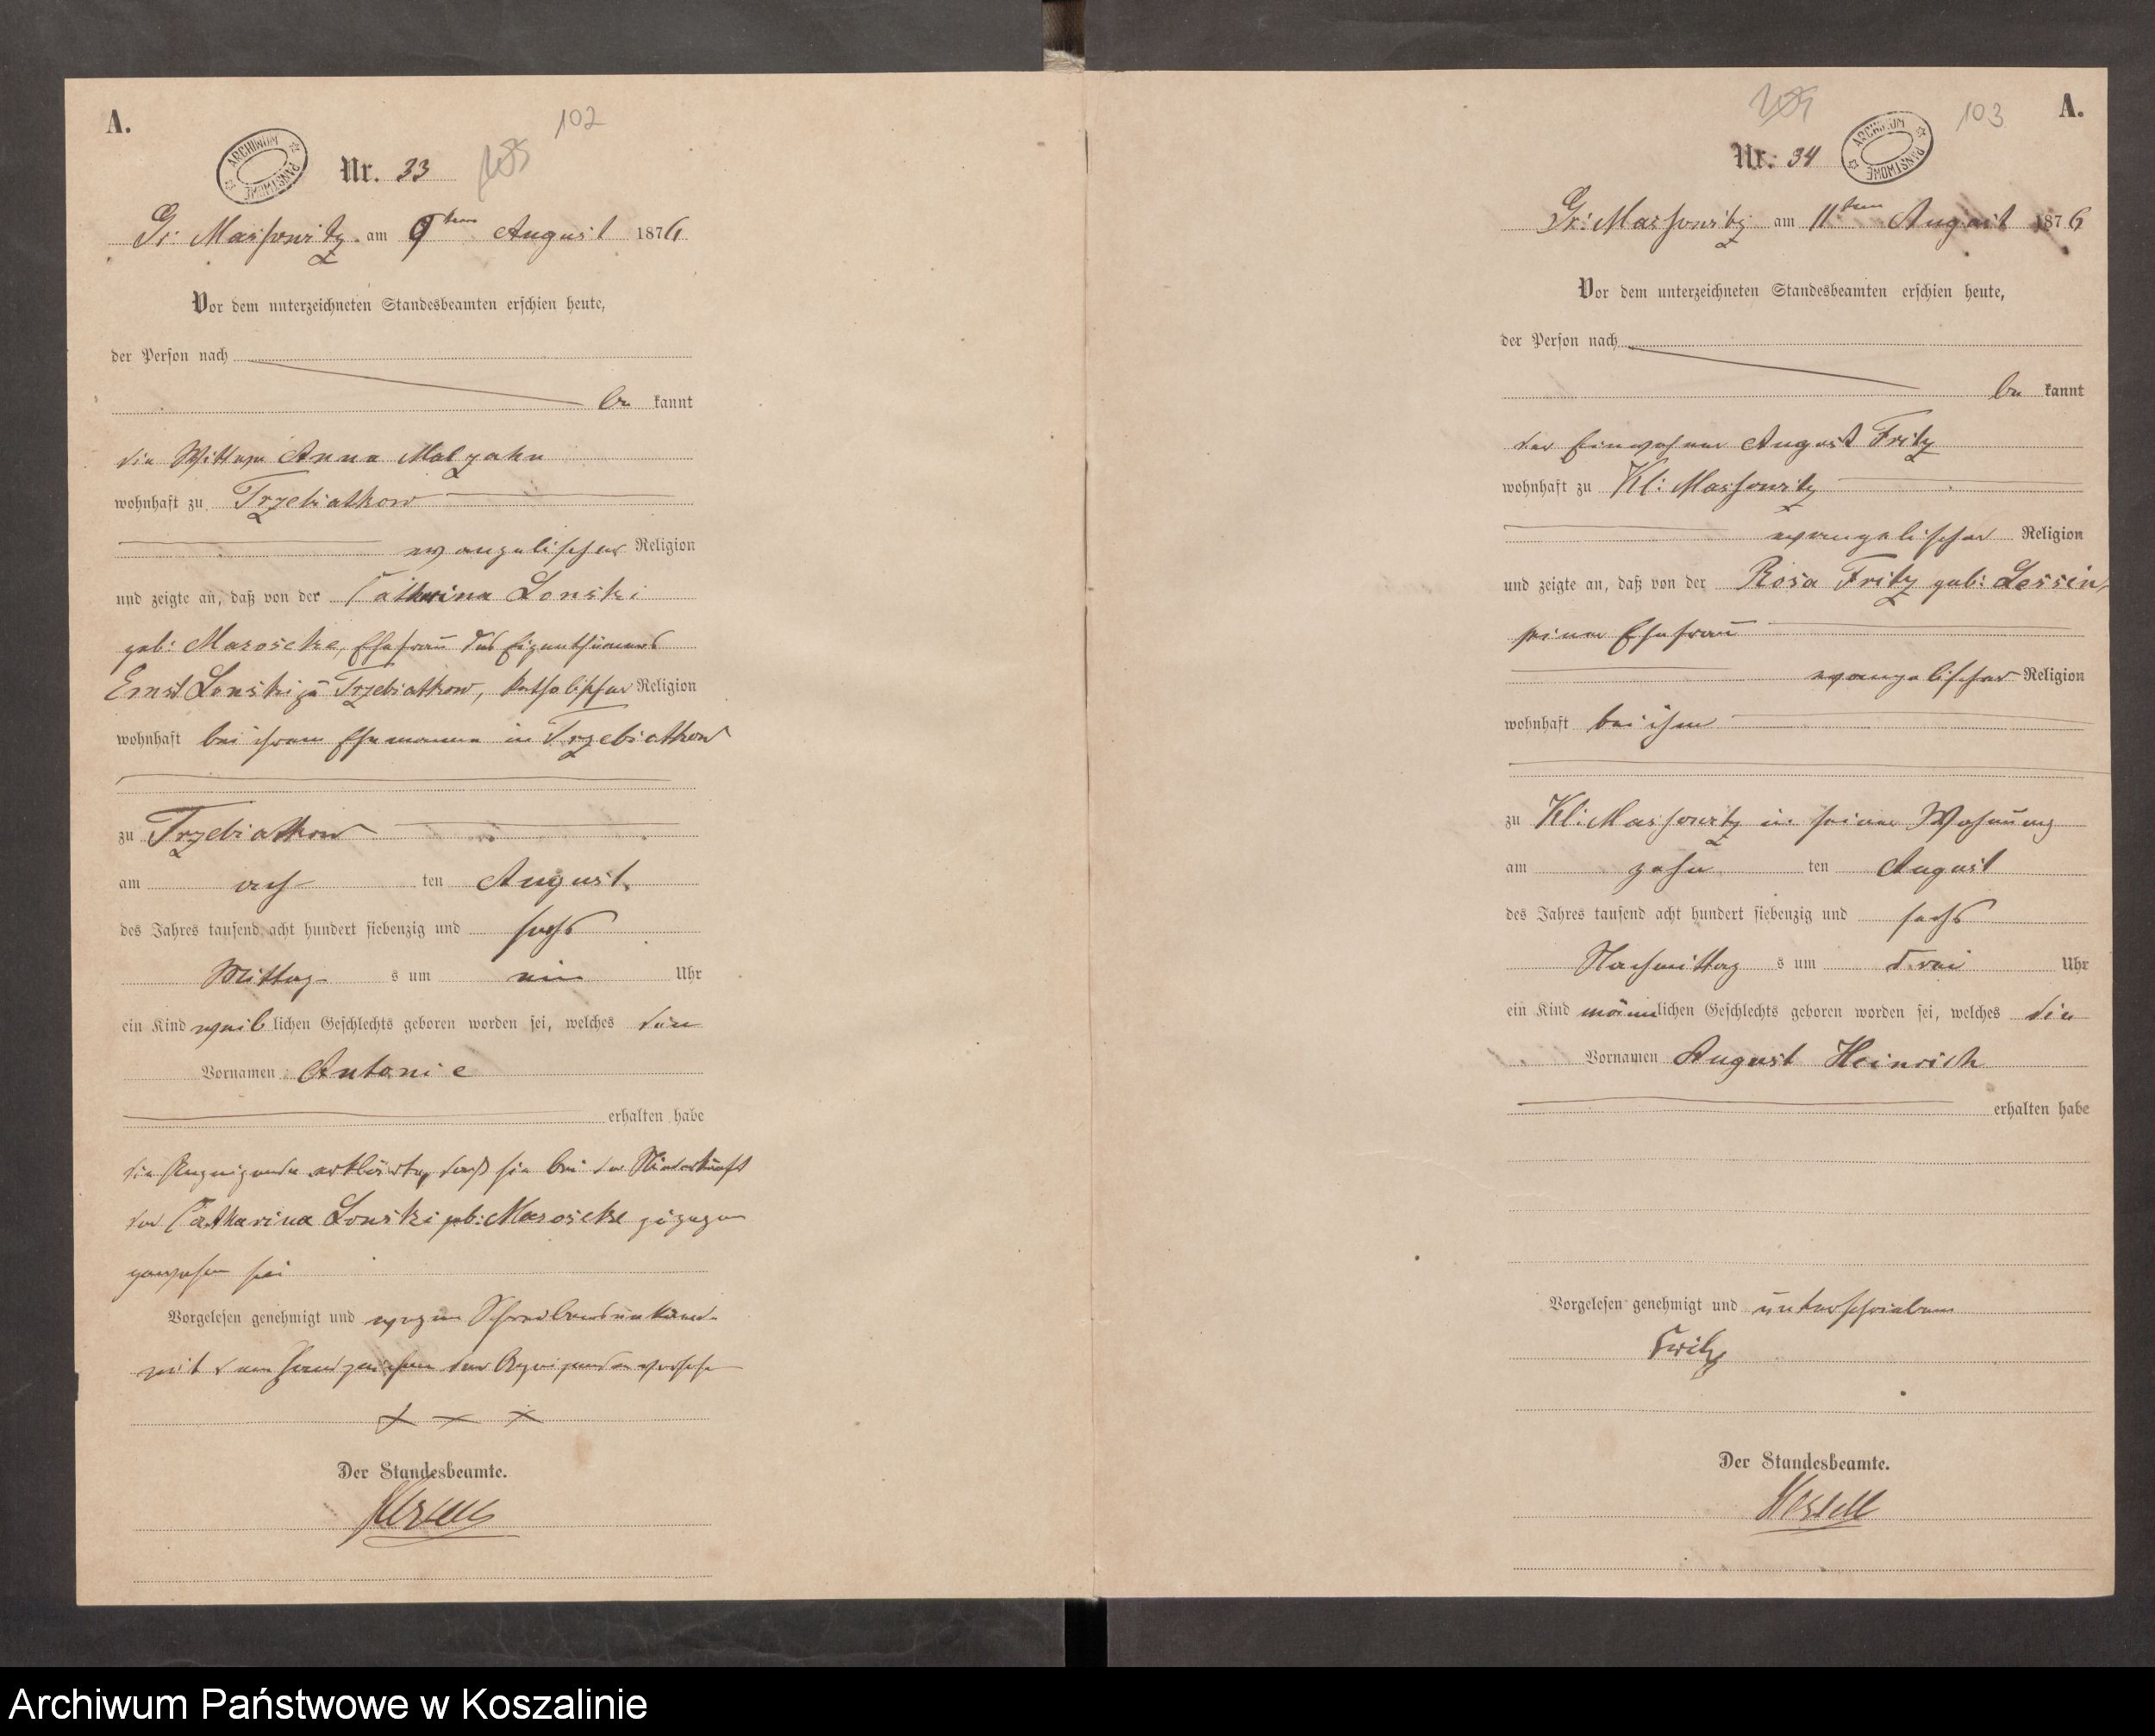 A.
102
ARCHIWUM PAŃSTWOWE
Nr. 33
Gr: Massowitz am 9ten August 1876
Vor dem unterzeichneten Standesbeamten erschien heute,
der Person nach
be kannt
die Wittwe Anna Malzahn
wohnhaft zu Trzebiatkow
evangelischer Religion
und zeigte an, daß von der Catharina Lonski
geb: Maroscke, Ehefrau des Eigenthümers
Ernst Lonski zu Trzebiatkow, katholischer Religion
wohnhaft bei ihrem Ehemanne in Trzebiatkow
zu Trzebiatkow
am ach ten August
des Jahres tausend acht hundert siebenzig und sechs
Mittag s um ein Uhr
ein Kind weib lichen Geschlechts geboren worden sei, welches den
Vornamen Antonie
erhalten habe
die Anzeigende erklärte, daß sie bei der Niederkunft
der Catharina Lonski geb: Maroscke zugegen
gewesen sei
Vorgelesen genehmigt und wegen Schreibensunkunde
mit dem Handzeichen der Anzeigenden versehen
x x x
Der Standesbeamte.
A.
103
ARCHIWUM PAŃSTWOWE
Nr. 34
Gr: Massowitz am 11ten August 1876
Vor dem unterzeichneten Standesbeamten erschien heute,
der Person nach
be kannt
der Einwohner August Fritz
wohnhaft zu Kl: Massowitz
evangelischer Religion
und zeigte an, daß von der Rosa Fritz geb: Lessin,
seiner Ehefrau
evangelischer Religion
wohnhaft bei ihm
zu Kl: Massowitz in seiner Wohnung
am zehn ten August
des Jahres tausend acht hundert siebenzig und sechs
Nachmittag s um drei Uhr
ein Kind männlichen Geschlechts geboren worden sei, welches die
Vornamen August Heinrich
erhalten habe
Vorgelesen genehmigt und unterschrieben
Fritz
Der Standesbeamte.
Archiwum Państwowe w Koszalinie